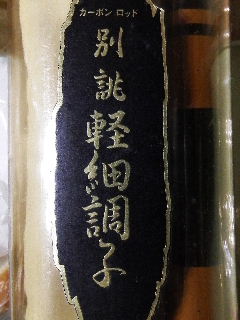 カーボン ロッド
別誂
軽細調子